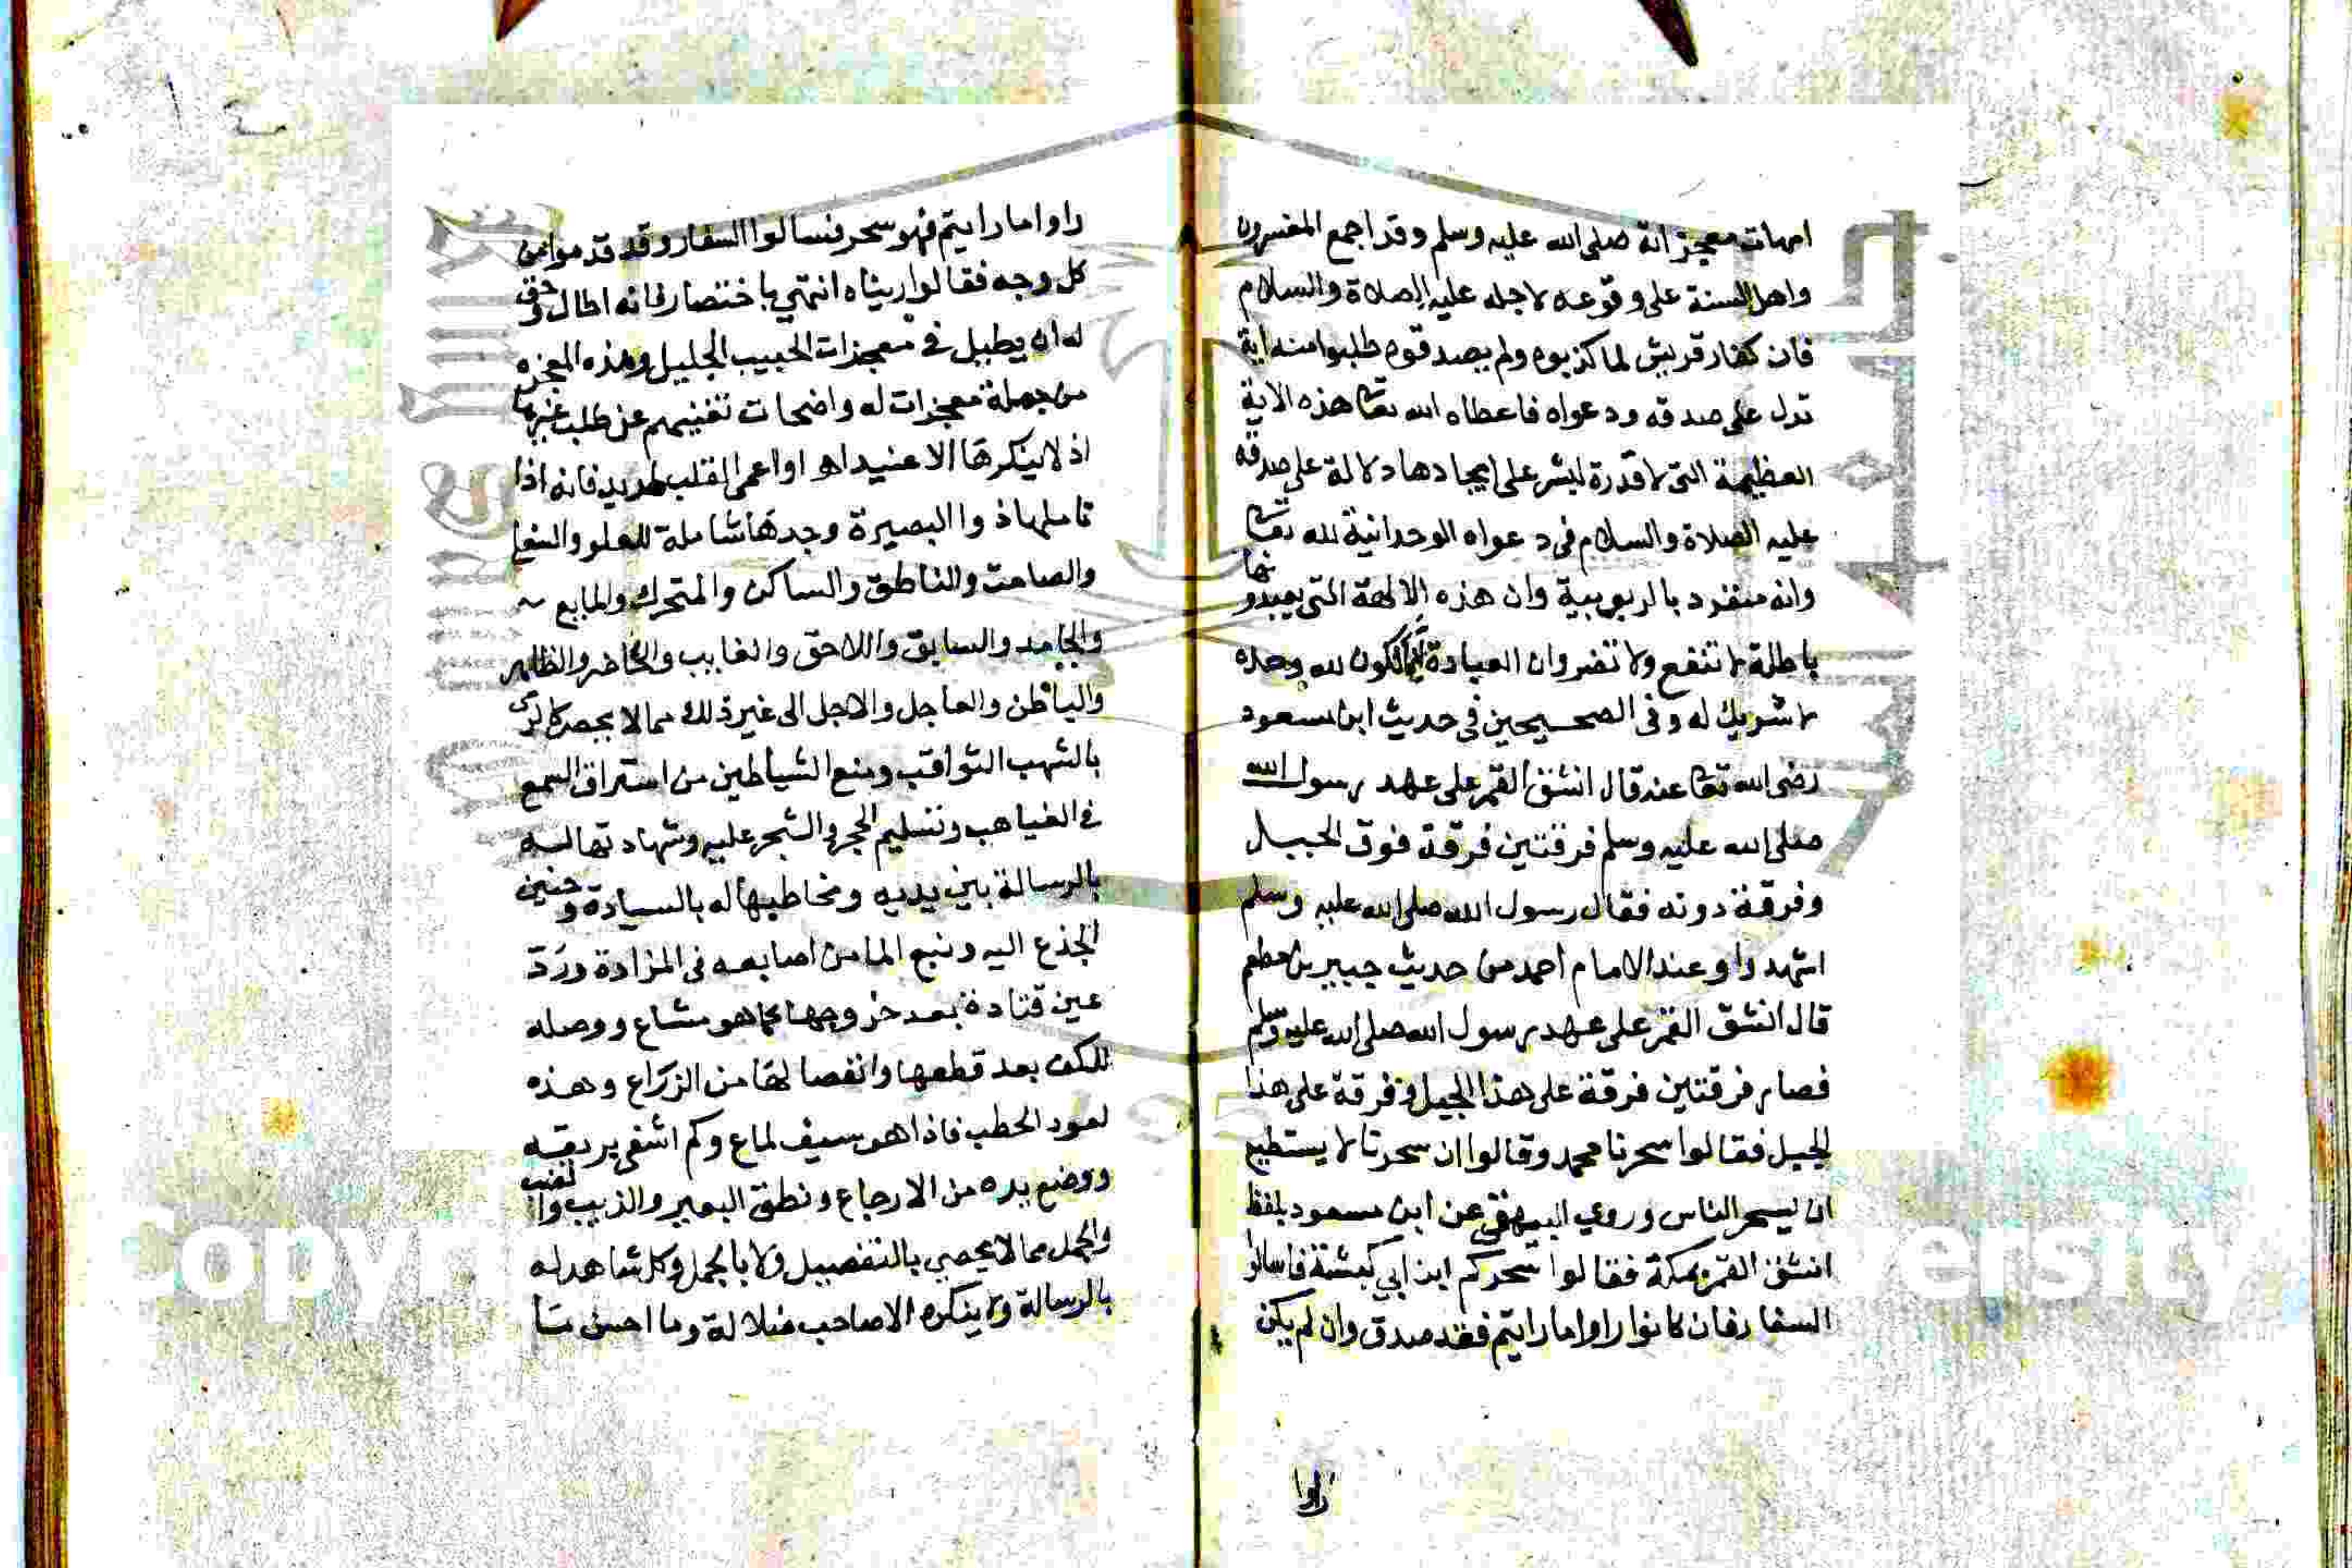 امهات معجزاته صلى الله عليه وسلم وقد اجمع المفسرون
واهل السنة على وقوعه لاجله عليه الصلاة والسلام
فان كفار قريش لما كذبوه ولم يصدقوه طلبوا منه اية
تدل على صدقه ودعواه فاعطاه الله تعا هذه الاية
العظيمة التى لا قدرة لبشر على ايجادها دلالة على صدقه
عليه الصلاة والسلام فى دعواه الوحدانية لله تعا
وانه منفرد بالربوبية وان هذه الالهة التى يعبدونها
باطلة لا تنفع ولا تضر وان العبادة انما تكون لله وحده
لا شريك له وفى الصحيحين فى حديث ابن مسعود
رضى الله تعا عنه قال انشق القمر على عهد رسول الله
صلى الله عليه وسلم فرقتين فرقة فوق الجبل
وفرقة دونه فقال رسول الله صلى الله عليه وسلم
اشهدوا وعند الامام احمد من حديث جبير بن مطعم
قال انشق القمر على عهد رسول الله صلى الله عليه وسلم
فصار فرقتين فرقة على هذا الجبل وفرقة على هذا
الجبل فقالوا سحرنا محمد وقالوا ان سحرنا لا يستطيع
ان يسحر الناس وروي البيهقى عن ابن مسعود بلفظ
انشق القمر بمكة فقالوا سحركم ابن ابي كبشة فاسالوا
السفار فان كانوا راوا ما رايتم فقد صدق وان لم يكن
راوا
راوا ما رايتم فهو سحر فسالوا السفار وقد قدموا من
كل وجه فقالوا ريناه انتهي باختصار فانه اطال وحق
له ان يطيل فى معجزات الحبيب الجليل وهذه المعجزه
من جملة معجزات له واضحات تغنيهم عن طلب غيرها
اذ لا ينكرها الا عنيد اواعمى القلب فانه اذا
تاملها ذوا البصيرة وجدها شاملة للعلو والسفل
والصامت والناطق والساكن والمتحرك والمايع
والجامد والسابق واللاحق والغايب والحاضر والظاهر
والباطن والعاجل والاجل الى غير ذلك مما لا يحصر
بالشهب الثواقب ومنع الشياطين من استراق السمع
فى الغياهب وتسليم الحجر والشجر عليه وشهادتها له
بالرسالة بين يديه ومخاطبها له بالسيادة وحنين
الجذع اليه ونبع الما من اصابعه فى المزادة ورد
عين قتادة بعد خروجها كما هو مشاع ووصله
للكف بعد قطعها وانفصالها من الزراع وهذه
لعود الحطب فاذا هو سيف لماع وكم اشفى بريقه
ووضع يده من الارجاع ونطق البعير والذيب والضب
والجمل مما لا يحصي بالتفصيل ولا بالجمل وكل شاهد له
بالرسالة ولا ينكره الا صاحب ضلالة وما احسن ما